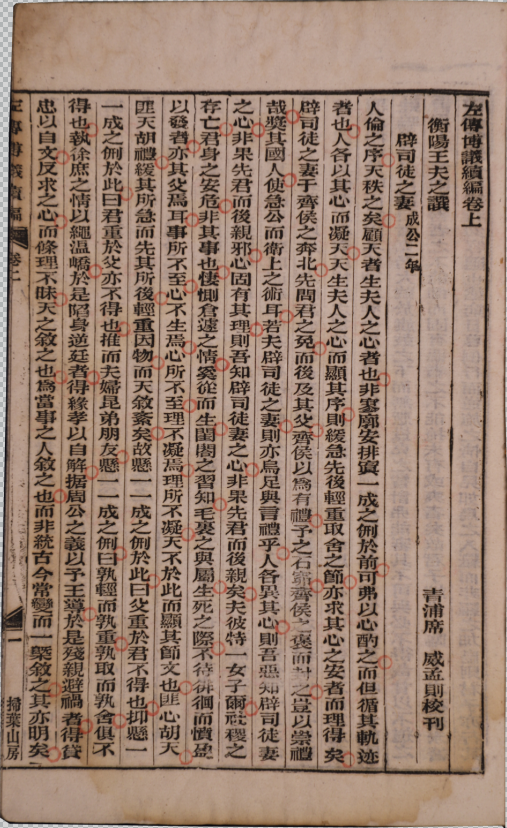 左傳博議續編卷上
衡陽王夫之譔
青浦席　威孟則校刊
辟司徒之妻成公二年
人倫之序天秩之矣顧天者生夫人之心者也非寥廓安排寘一成之侀於前可弗以心酌之而但循其軌迹
者也人各以其心而凝天天生夫人之心而顯其序則緩急先後輕重取舍之節亦求其心之安者而理得矣
辟司徒之妻于齊侯之奔北先問君之免而後及其父齊侯以爲有禮予之石窌齊侯之褒而封之豈以崇禮
哉奬其國人使急公而衛上之術耳若夫辟司徒之妻則亦烏足與言禮乎人各異其心則吾惡知辟司徒妻
之心非果先君而後親邪心固有其理則吾知辟司徒妻之心非果先君而後親矣夫彼特一女子爾社稷之
存亡君身之安危非其事也悽惻倉遽之情奚從而生閨閤之習知毛裏之與屬生死之際不待徘徊而憤盈
以發者亦其父焉耳事所不至心不生焉心所不至理不凝焉理所不凝天不於此而顯其節文也匪心胡天
匪天胡禮緩其所急而先其所後輕重因物而天敘紊矣故懸一一成之侀於此曰父重於君不得也抑懸一
一成之侀於此曰君重於父亦不得也推而夫婦昆弟朋友懸一一成之侀曰孰輕而孰重孰取而孰舍俱不
得也執徐庶之情以繩溫嶠於是陷身逆廷者得緣孝以自解据周公之義以予王導於是殘親避禍者得貸
忠以自文反求之心而條理不昧天之敘之也爲當事之人敘之也而非統古今常變而一槩敘之其亦明矣
左傳博議續編　卷上　一　掃葉山房